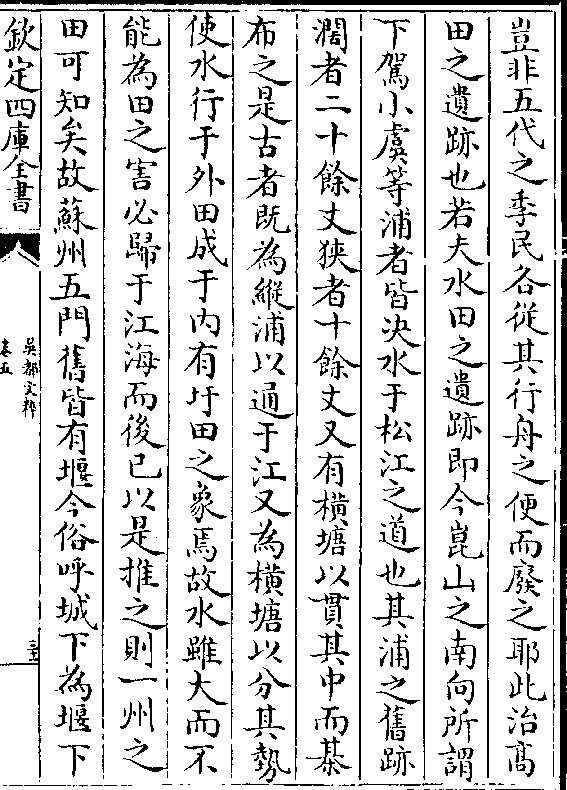 豈非五代之季民各從其行舟之便而廢之耶此治髙
田之遺跡也若夫水田之遺跡即今崑山之南向所謂
下駕小虞等浦者皆决水于松江之道也其浦之舊跡
濶者二十餘丈狹者十餘丈又有橫塘以貫其中而棊
布之是古者既為縱浦以通于江又為橫塘以分其勢
使水行于外田成于内有圩田之象焉故水雖大而不
能為田之害必歸于江海而後已以是推之則一州之
田可知矣故蘇州五門舊皆有堰今俗呼城下為堰下
欽定四庫全書
吳都文粹
卷五